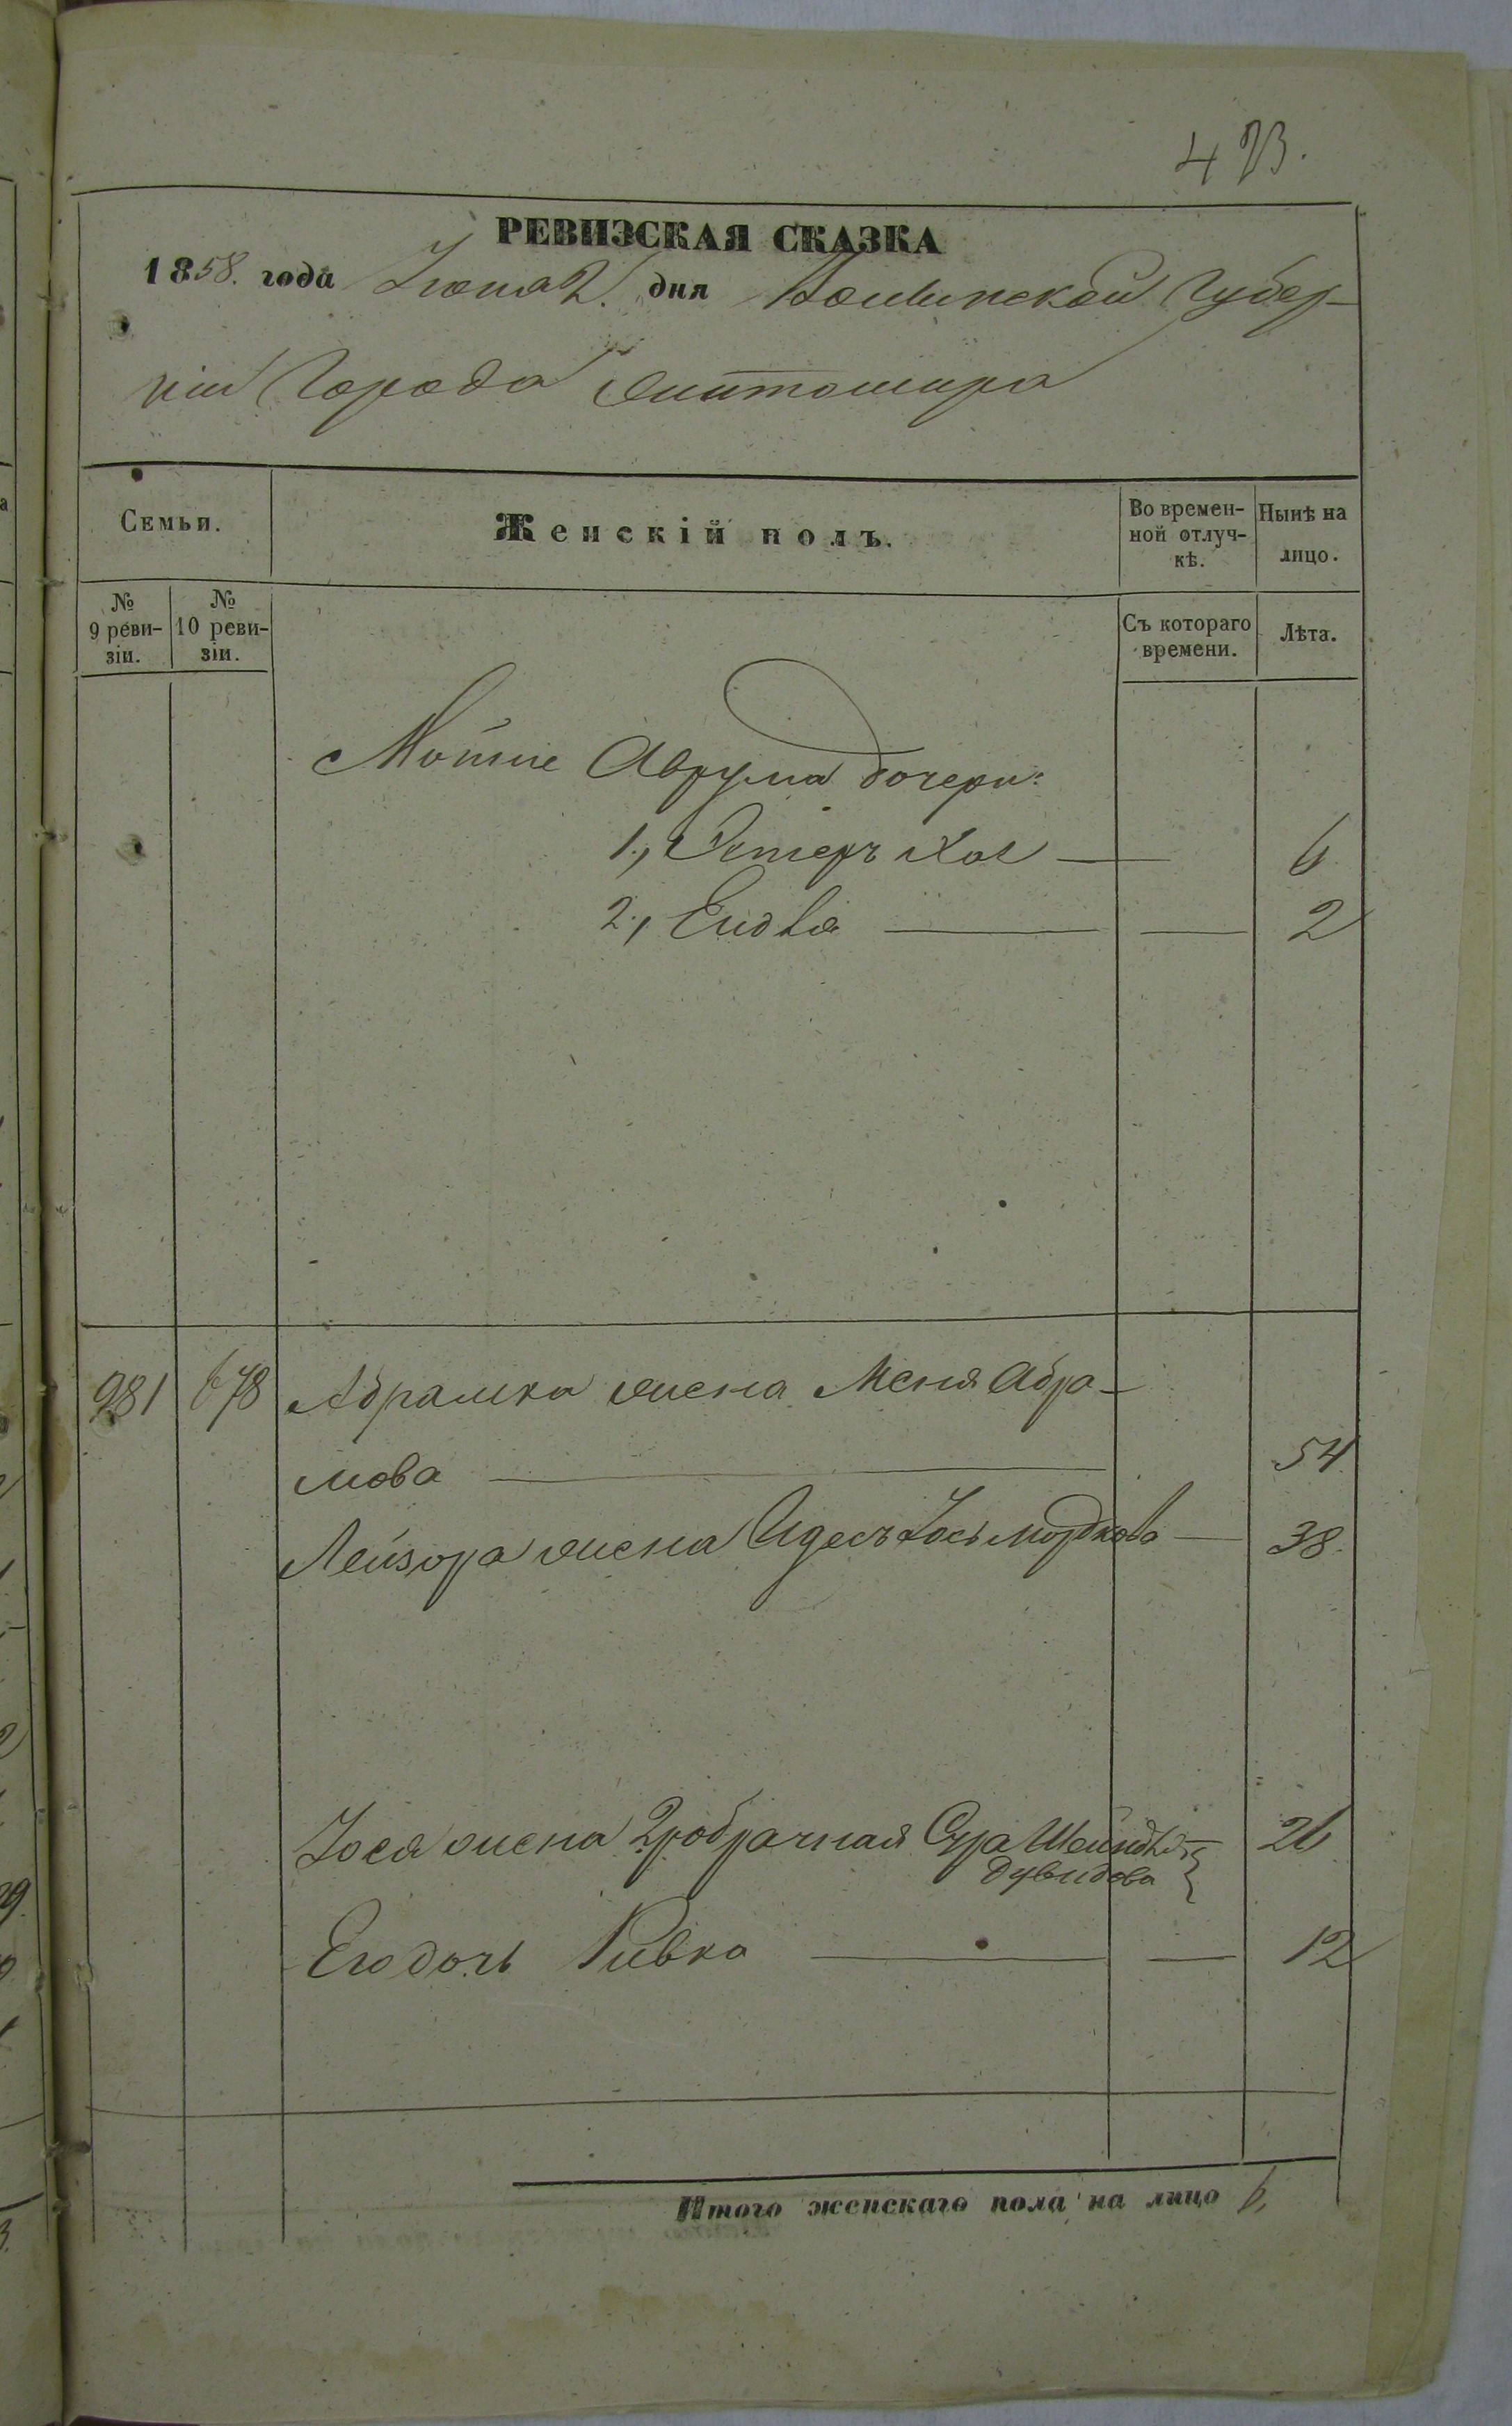 473.
РЕВИЗСКАЯ СКАЗКА
1858. года Іюня 2. дня Волынской Губер-
ніи Города Житомира
Семьи.
Женскій полъ.
Во времен-
ной отлуч-
кѣ.
Нынѣ на
лицо.
№
9 реви-
зіи.
№
10 реви-
зіи.
Съ котораго
времени.
Лѣта.
Мотие Аврума дочери:
1., Эстеръ Хая — 6
2., Ейдля — — 2
981 678 Абрамка жена Меня Абра-
мова — 54
Лейзора жена Идесъ Іось Мордкова — 38.
Іося жена 2робрачная Сура Шейндля 26
Дувидова
Его дочь Ривка — — 12
Итого женскаго пола на лицо 6.